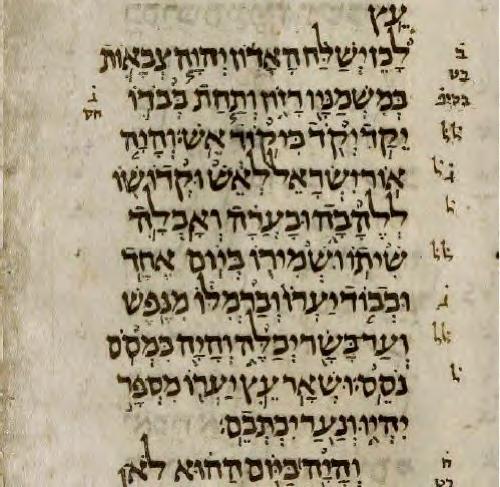 עֵֽץ
לָכֵן יְשַׁלַּח הָאָדוֹן יְהוָה צְבָאוֹת
בְּמִשְׁמַנָּיו רָזוֹן וְתַחַת כְּבֹדוֹ
יֵקַד יְקֹד כִּיקוֹד אֵשׁ׃ וְהָיָה
אוֹר יִשְׂרָאֵל לְאֵשׁ וּקְדוֹשׁוֹ
לְלֶהָבָה וּבָעֲרָה וְאָכְלָה
שִׁיתוֹ וּשְׁמִירוֹ בְּיוֹם אֶחָד׃
וּכְבוֹד יַעְרוֹ וְכַרְמִלּוֹ מִנֶּפֶשׁ
וְעַד בָּשָׂר יְכַלֶּה וְהָיָה כִּמְסֹס
נֹסֵס׃ וּשְׁאָר עֵץ יַעְרוֹ מִסְפָּר
יִהְיוּ וְנַעַר יִכְתְּבֵם׃
וְהָיָה בַּיּוֹם הַהוּא לֹא